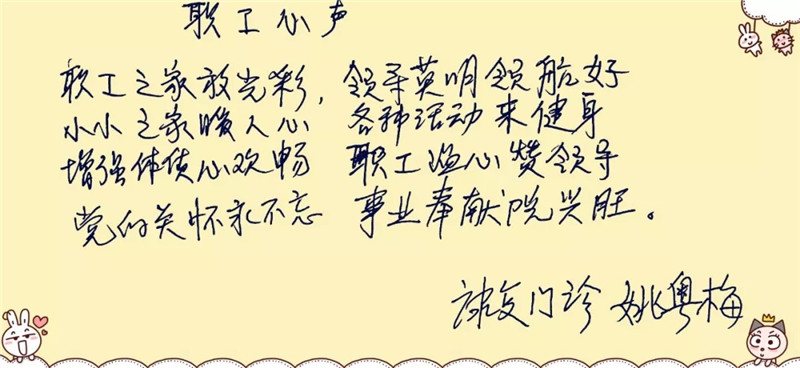 职工心声
职工之家放光彩，领导英明领航好
小小之家暖人心 各种活动来健身
增强体质心欢畅 职工心赞领导
党的关怀永不忘 事业奉献院兴旺。
康复门诊 姚粤梅